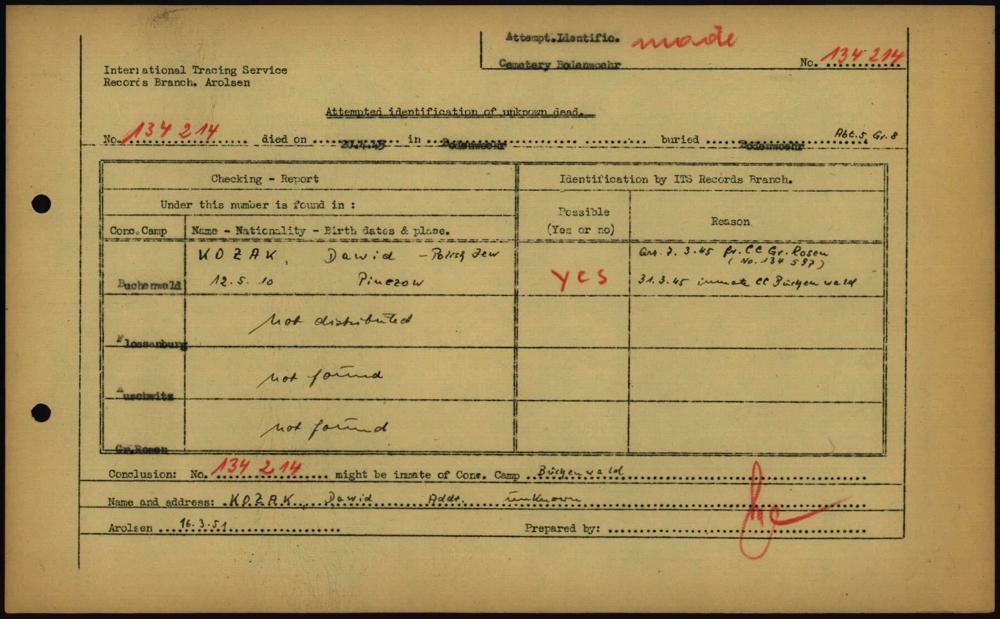 Attempt.Identific. made
Cemetery Bodenwoehr No. 134 214
International Tracing Service
Records Branch. Arolsen
Attempted identification of unknown dead.
No. 134 214 died on 20.4.45 in Bodenwoehr buried Bodenwoehr Abt. 5, Gr. 8
Checking - Report Identification by ITS Records Branch.
Under this number is found in :
Possible
(Yes or no) Reason
Conc. Camp Name - Nationality - Birth dates & plane.
KOZAK, Dawid - Polish Jew Arr. 7. 3.45 fr. CC Gr. Rosen
(No. 134 597)
Buchenwald 12.5. 10 Pinczow YES 31.3.45 inmate CC Buchenwald
not distributed
Flossenburg
not found
Auschwitz
not found
Gr.Rosen
Conclusion: No. 134 214 might be inmate of Conc. Camp Buchenwald
Name and address: KOZAK Dawid Addr. unknown
Arolsen 16.3.51 Prepared by: